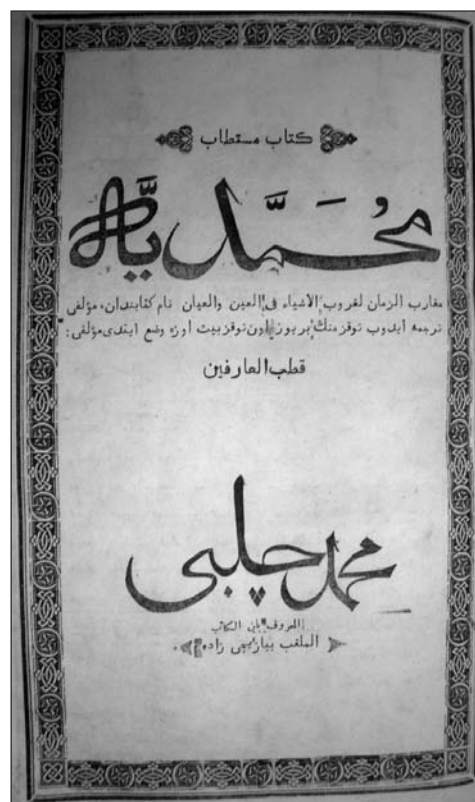 كتاب مستطاب
محمديه
مغارب الزمان لغروب الاشياء فى العين والعيان نام كتابندان، مؤلفى
ترجمه ايدوب توقز منك بر يوز اون توقز بيت اوزه وضع ايتدى مؤلفى:
قطب العارفين
محمد چلبى
المعروف بابن الكاتب
الملقب بيازيجى زاده